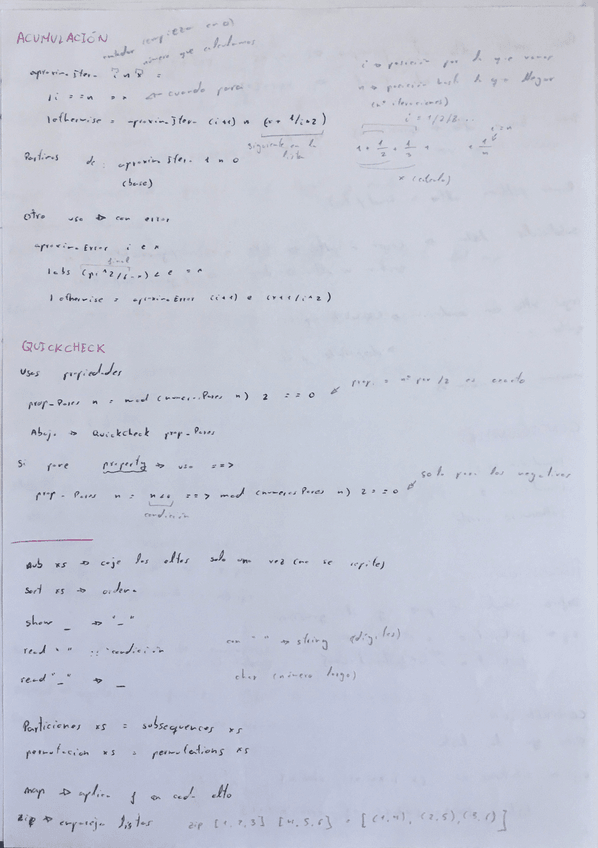 ACUMULACIÓN
(empieza en 0)
siempre que calculamos
aproximaIter i n x =
| i == n = x ← cuando para
| otherwise = aproximaIter (i+1) n (x + 1/i^2)
siguiente en la lista
i → posición por la que vamos
n → posición hasta la que llegar
(nº iteraciones)
i = 1/2/3...
i = n
1 + 1/2 + 1/3 + + 1/n
x (calculo)
Partimos de: aproximaIter 1 n 0
(base)
Otro uso → con error
aproximaError i e x
| abs (pi^2/6 - x) < e = x
| otherwise = aproximaError (i+1) e (x+1/i^2)
QUICKCHECK
Usas propiedades
prop_Pares n = mod (numerosPares n) 2 == 0
prop. = nº par/2 es exacto
Abajo → quickCheck prop_Pares
Si pone property → uso ==>
prop_Pares n = n<0 ==> mod (numerosPares n) 2 == 0
condición
solo para los negativos
nub xs → coje los eltos solo una vez (no se repite)
sort xs → ordena
show _ → "_"
read " " :: condición
con " " → string (dígitos)
read "_" → _
char (número largo)
Particiones xs = subsequences xs
permutacion xs = permutations xs
map → aplica f en cada elto
zip → empareja listas zip [1,2,3] [4,5,6] = [(1,4),(2,5),(3,6)]